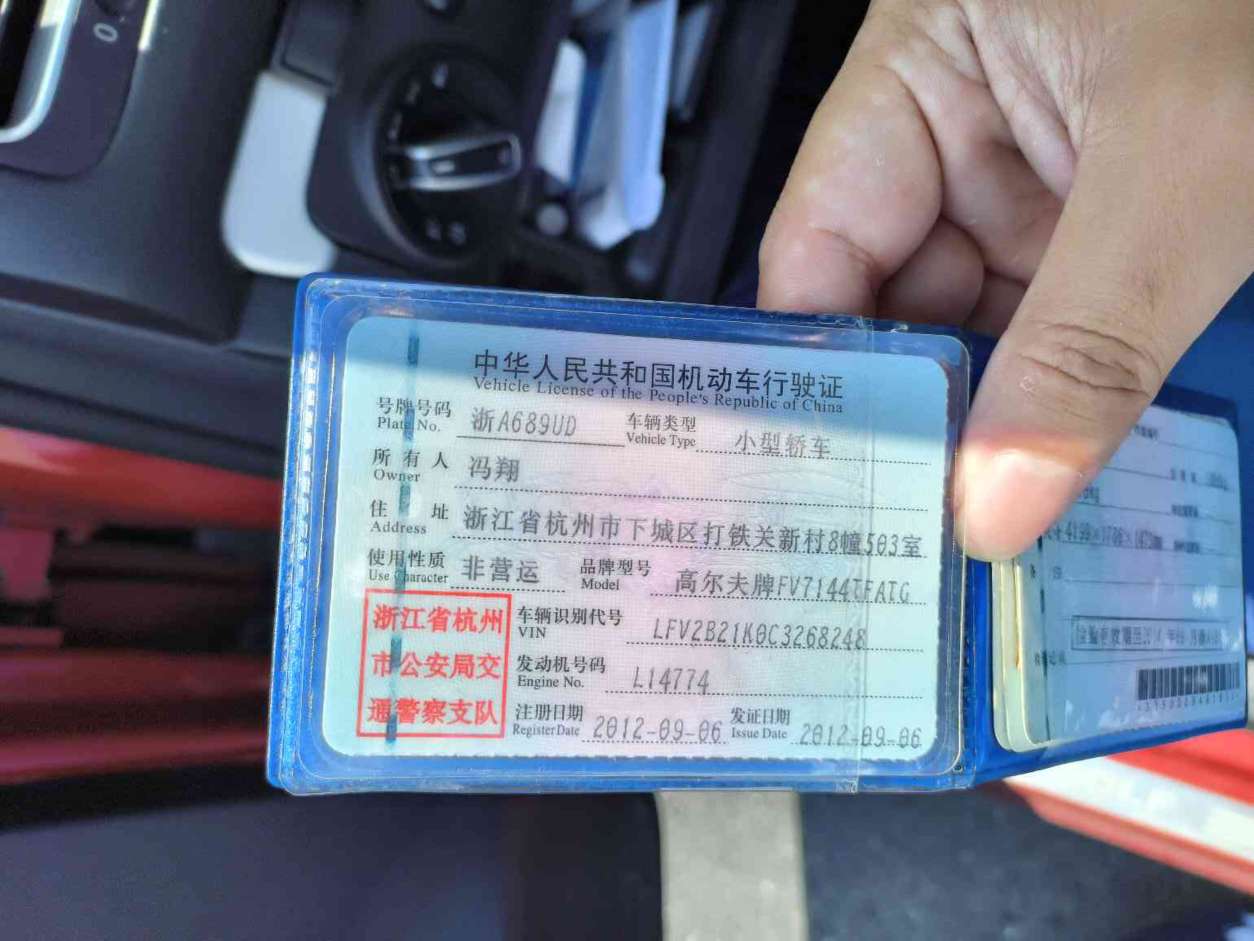 中华人民共和国机动车行驶证
Vehicle License of the People's Republic of China
号牌号码 浙A689UD 车辆类型 小型轿车
Plate No. Vehicle Type
所有人 冯翔
Owner
住址 浙江省杭州市下城区打铁关新村8幢503室
Address
使用性质 非营运 品牌型号 高尔夫牌FV7144TFATG
Use Character Model
浙江省杭州
市公安局交
通警察支队
车辆识别代号 LFV2B21K0C3268248
VIN
发动机号码 L14774
Engine No.
注册日期 2012-09-06 发证日期 2012-09-06
Register Date Issue Date
0